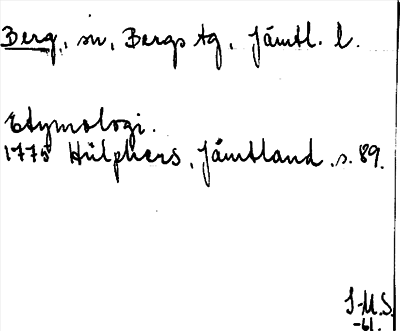 Berg, sn, Bergs tg, Jämtl. l.
Etymologi.
1775 Hülphers, Jämtland, s. 89.
I-M.S.
-61.